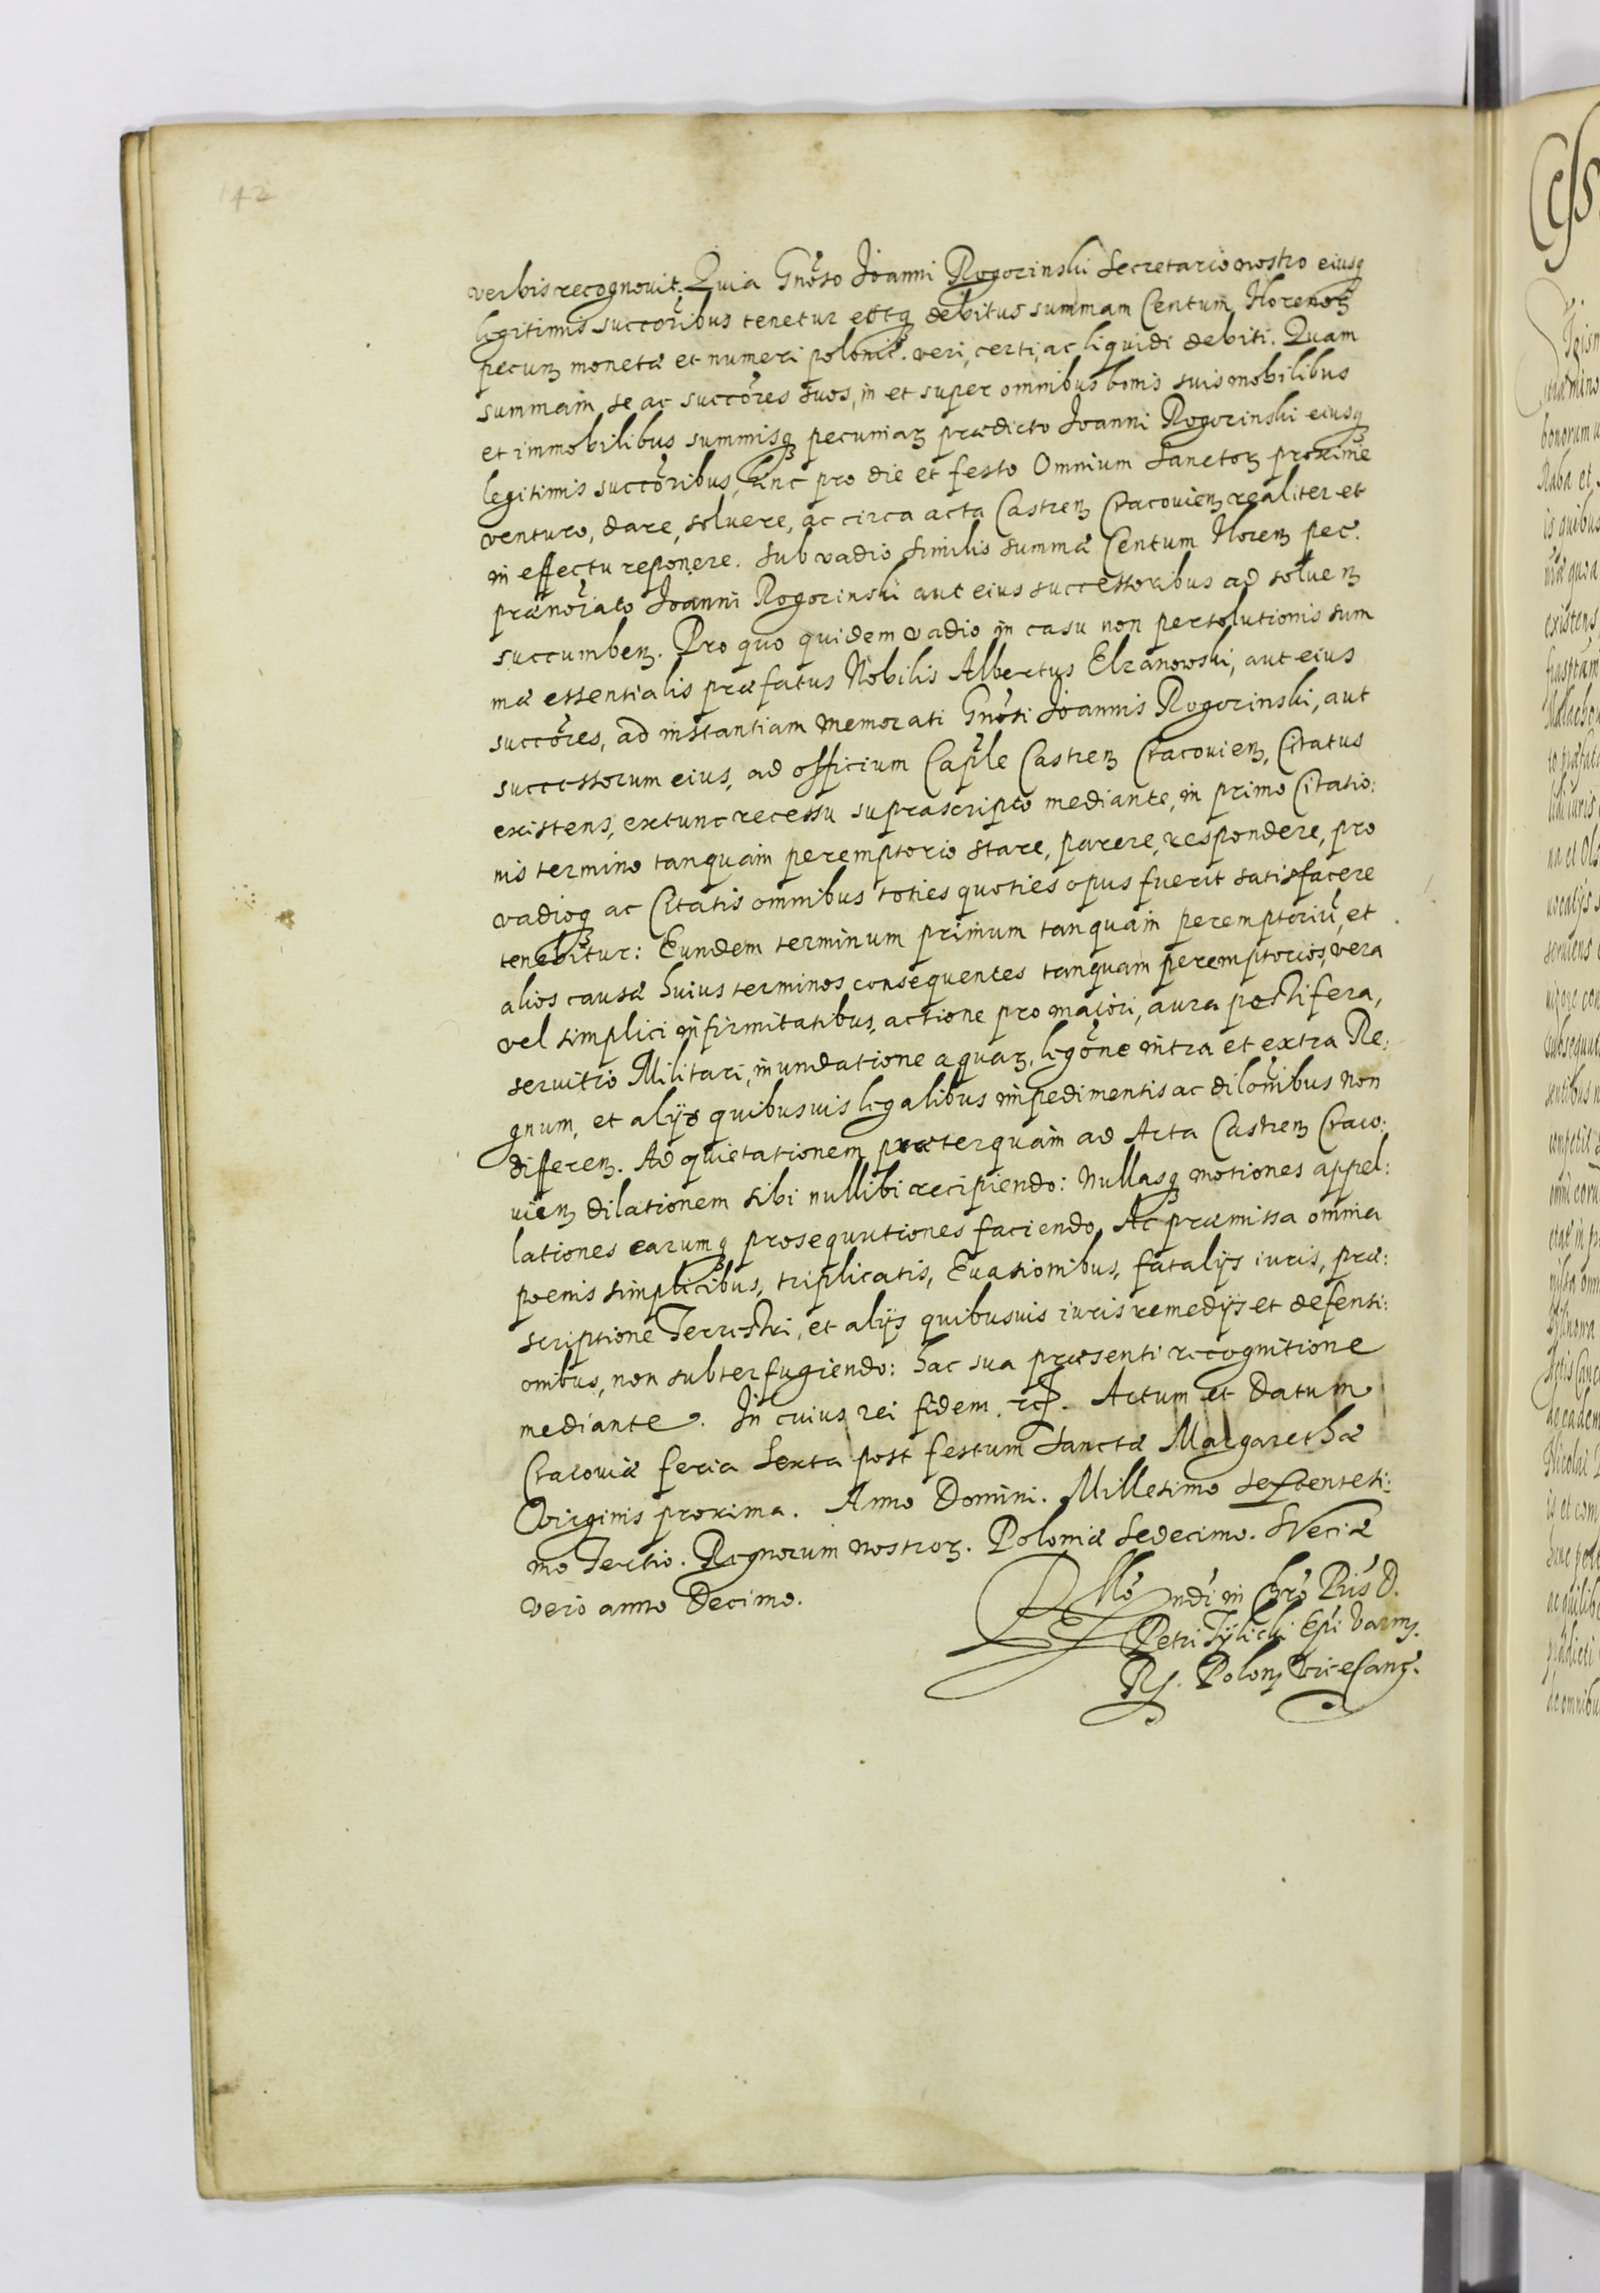 142
verbis recognovit. Quia Gnõso Joanni Rogozinski Secretario nostro eiusq
legitimis succõribus tenetur estq debitus summam Centum Florenoꝝ
pecuꝝ monetæ et numeri polonic. veri, certi, ac liquidi debiti. Quam
summam, se ac succõres suos, in et super omnibus bonis suis mobilibus
et immobilibus summisq pecuniaꝝ prædicto Joanni Rogozinski eiusq
legitimis succõribus, hinc pro die et festo Omnium Sanctoꝝ proxime
venturo, dare, soluere, ac circa acta Castreꝝ Cracouieꝝ realiter et
in effectu reponere. Sub vadio similis summæ Centum Floreꝝ pec.
prænõiato Joanni Rogozinski aut eius successoribus ad solueꝝ
succumbeꝝ. Pro quo quidem vadio in casu non persolutionis sum
mæ essentialis præfatus Nobilis Albertus Elzanowski, aut eius
succõres, ad instantiam memorati Gnõsi Joannis Rogozinski, aut
successorum eius, ad officium Caple Castreꝝ Cracouieꝝ, Citatus
existens, extunc recessu suprascripto mediante, in primo Citatio:
nis termino tanquam peremptorio stare, parere, respondere, pro
vadioq ac Citatis omnibus toties quoties opus fuerit satisfacere
tenebitur: Eundem terminum primum tanquam peremptoriũ, et
alios causæ huius terminos consequentes tanquam peremptorios, vera
vel simplici infirmitatibus, actione pro maiori, aura pestifera,
seruitio Militari, inundatione aquaꝝ, legõne intra et extra Re:
gnum, et alijs quibusuis legalibus impedimentis ac dilõnibus non
differeꝝ. Ad quietationem præterquam ad Acta Castreꝝ Craco:
uieꝝ dilationem sibi nullibi recipiendo: Nullasq motiones appel:
lationes earumq prosequutiones faciendo, Ac præmissa omnia
poenis simplicibus, triplicatis, Euasionibus, fatalijs iuris, præ:
scriptione Terrestri, et alijs quibusuis iuris remedijs et defensi:
onibus, non subterfugiendo: hac sua præsenti recognitione
mediante. In cuius rei fidem. Actum et Datum
Cracouiæ feria Sexta post festum Sanctæ Margarethæ
Virginis proxima. Anno Domini. Millesimo Sexcentesi:
mo Tertio. Regnorum nostroꝝ. Poloniæ Sedecimo. Sueciæ
vero anno Decimo.
Rlõ ndi in Chro Pris D.
Petri Tylicki Epi Varm.
R. Polonꝝ Vicecanc.